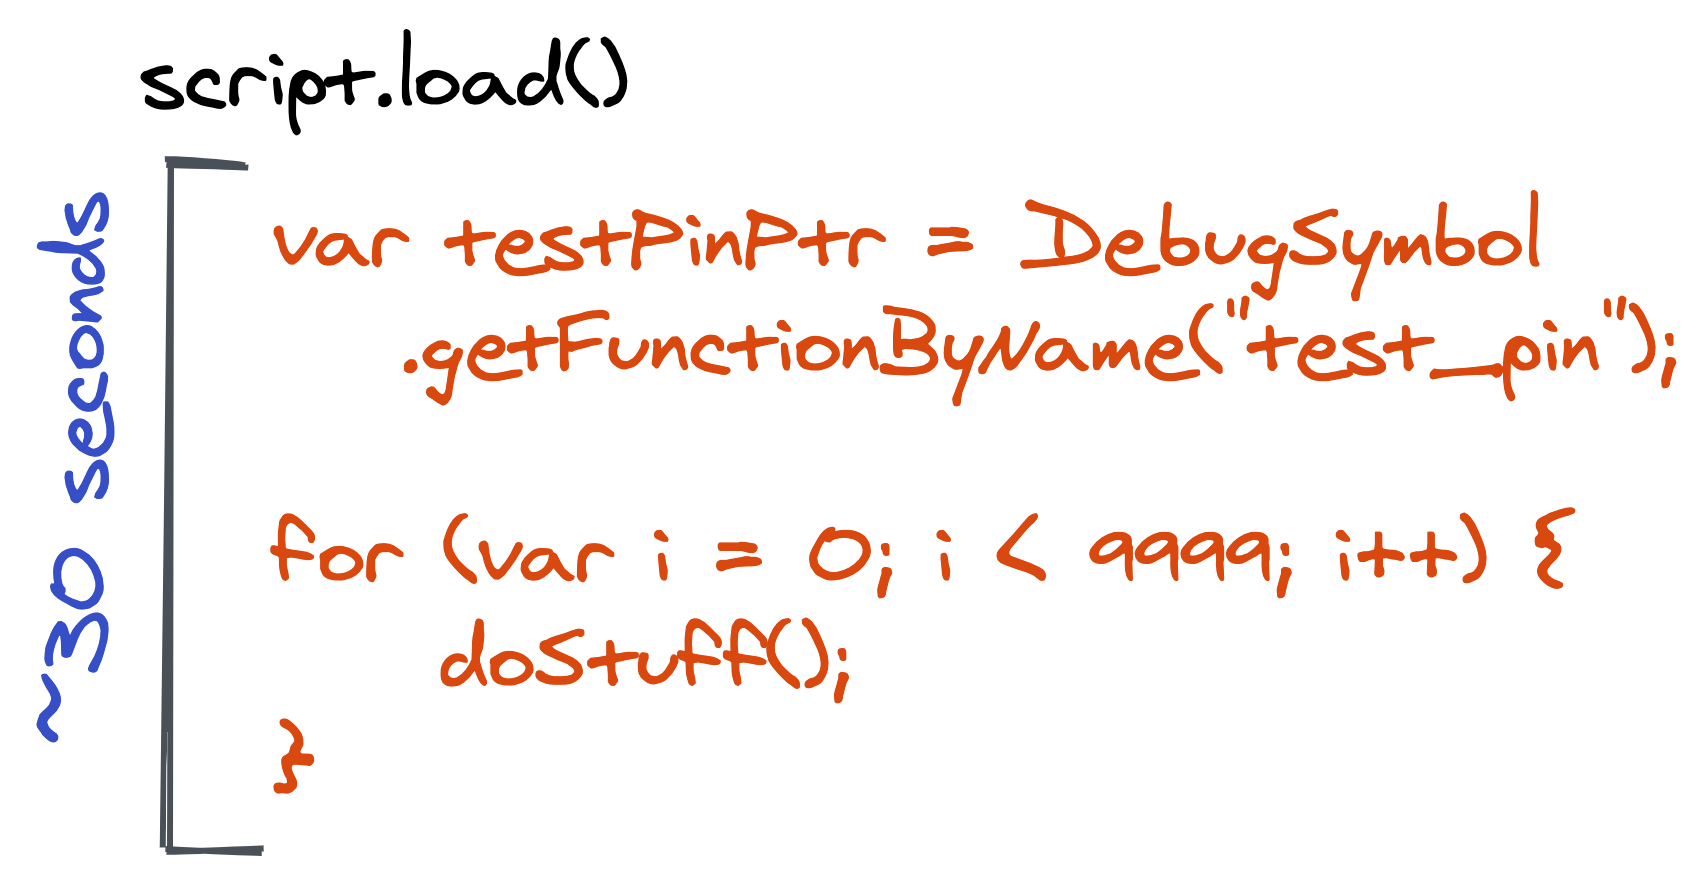 script.load()
~30 seconds
var testPinPtr = DebugSymbol
.getFunctionByName("test_pin");
for (var i = 0; i < 9999; i++) {
doStuff();
}